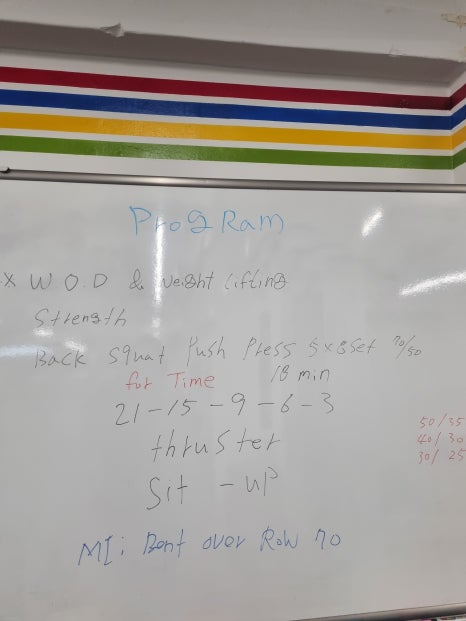 Program
x W.O.D & Weight Lifting
Strength
Back Squat Push Press 5x8set 70/50
for Time 18 min
21-15-9-6-3
50/35
40/30
30/25
thruster
Sit-up
MI: Bent over Row 70